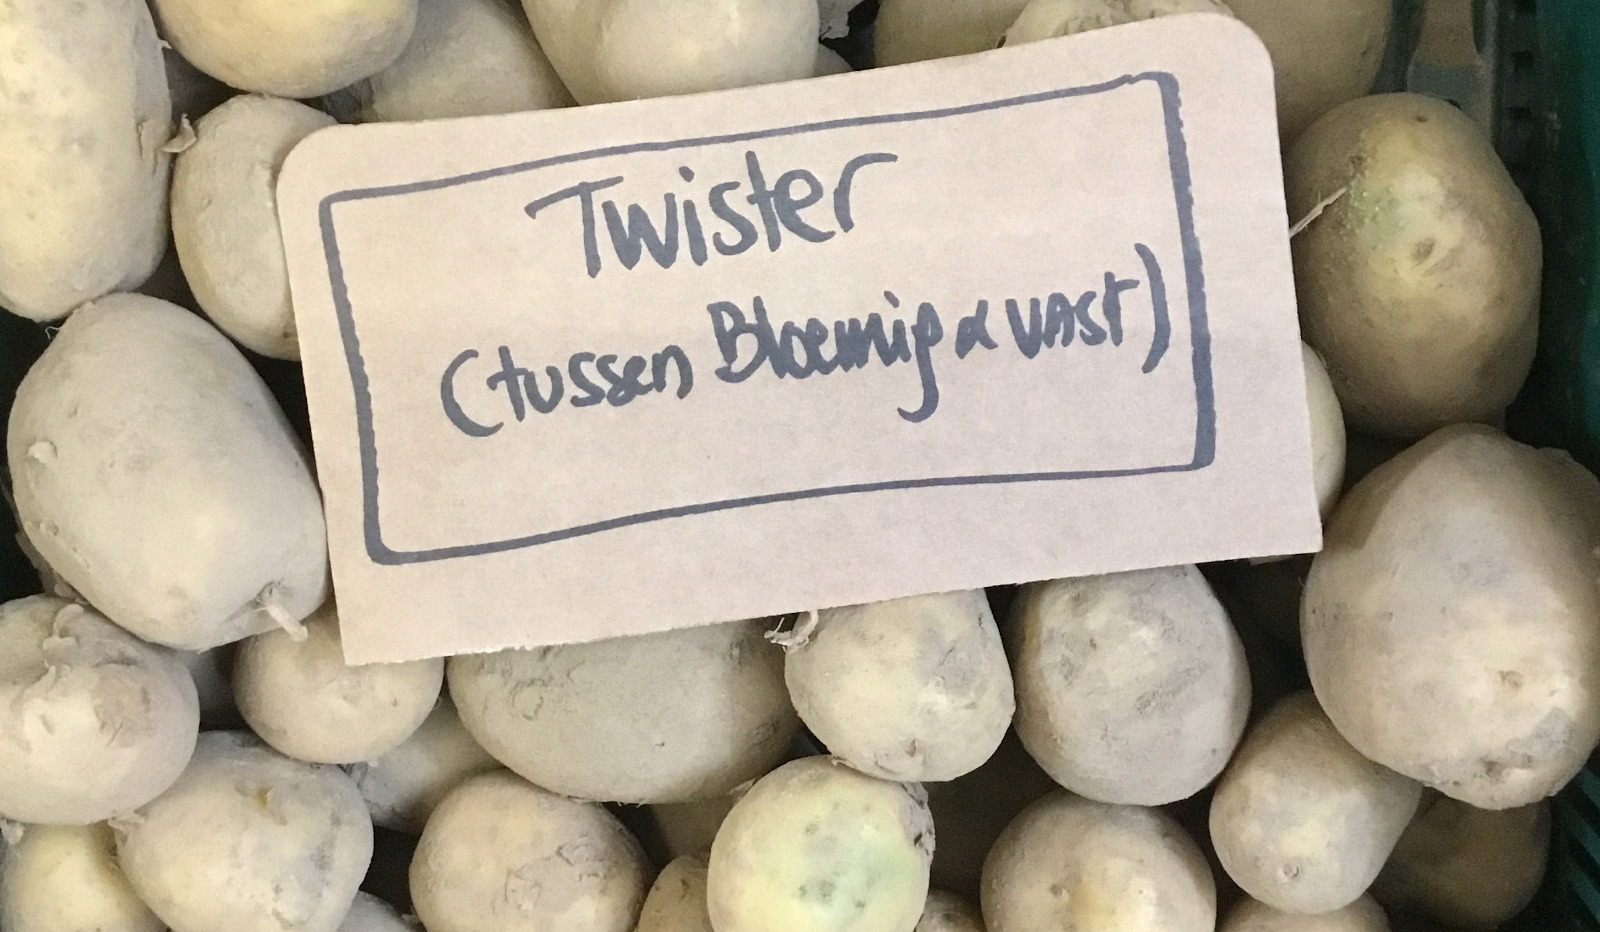 Twister
(tussen Bloemig & vast)